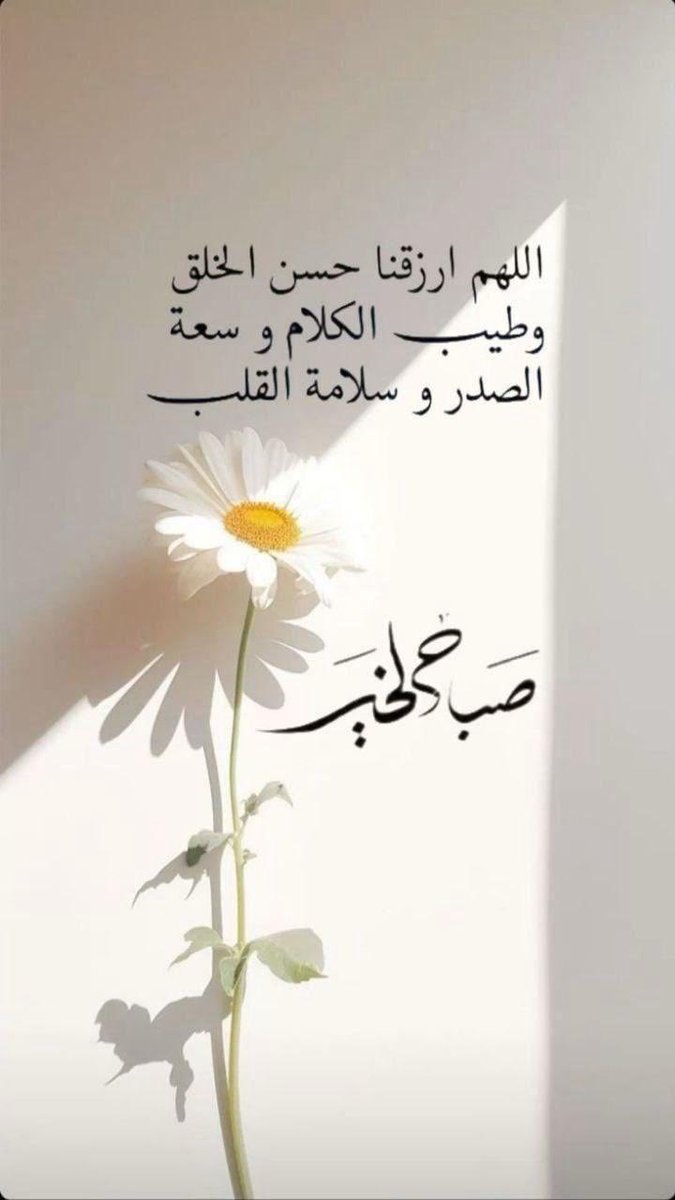 اللهم ارزقنا حسن الخلق
وطيب الكلام و سعة
الصدر و سلامة القلب
صباح الخير